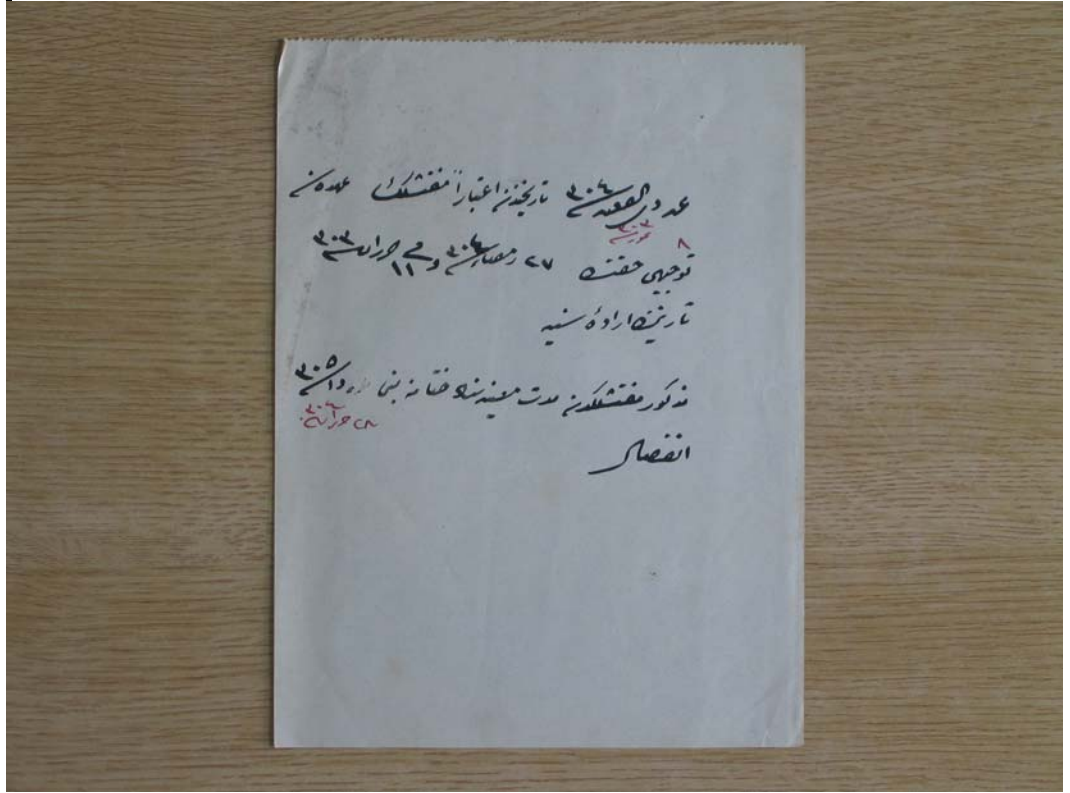 ذی القعده سنه ٣٠٤ تاریخندن اعتباراً مفتشلك عهده سنه
٨ تموز سنه ٣٠٣
توجیهی حقنده ٢٧ رمضان سنه ٣٠٤ و فی ١١ حزیران سنه ٣٠٣
تاریخنده ارادهٔ سنیه
مذكور مفتشلكدن مدت معینه سنك ختامنه بنی سنه ٣٠٥
حزیران سنه ٣٠٤
انفصال